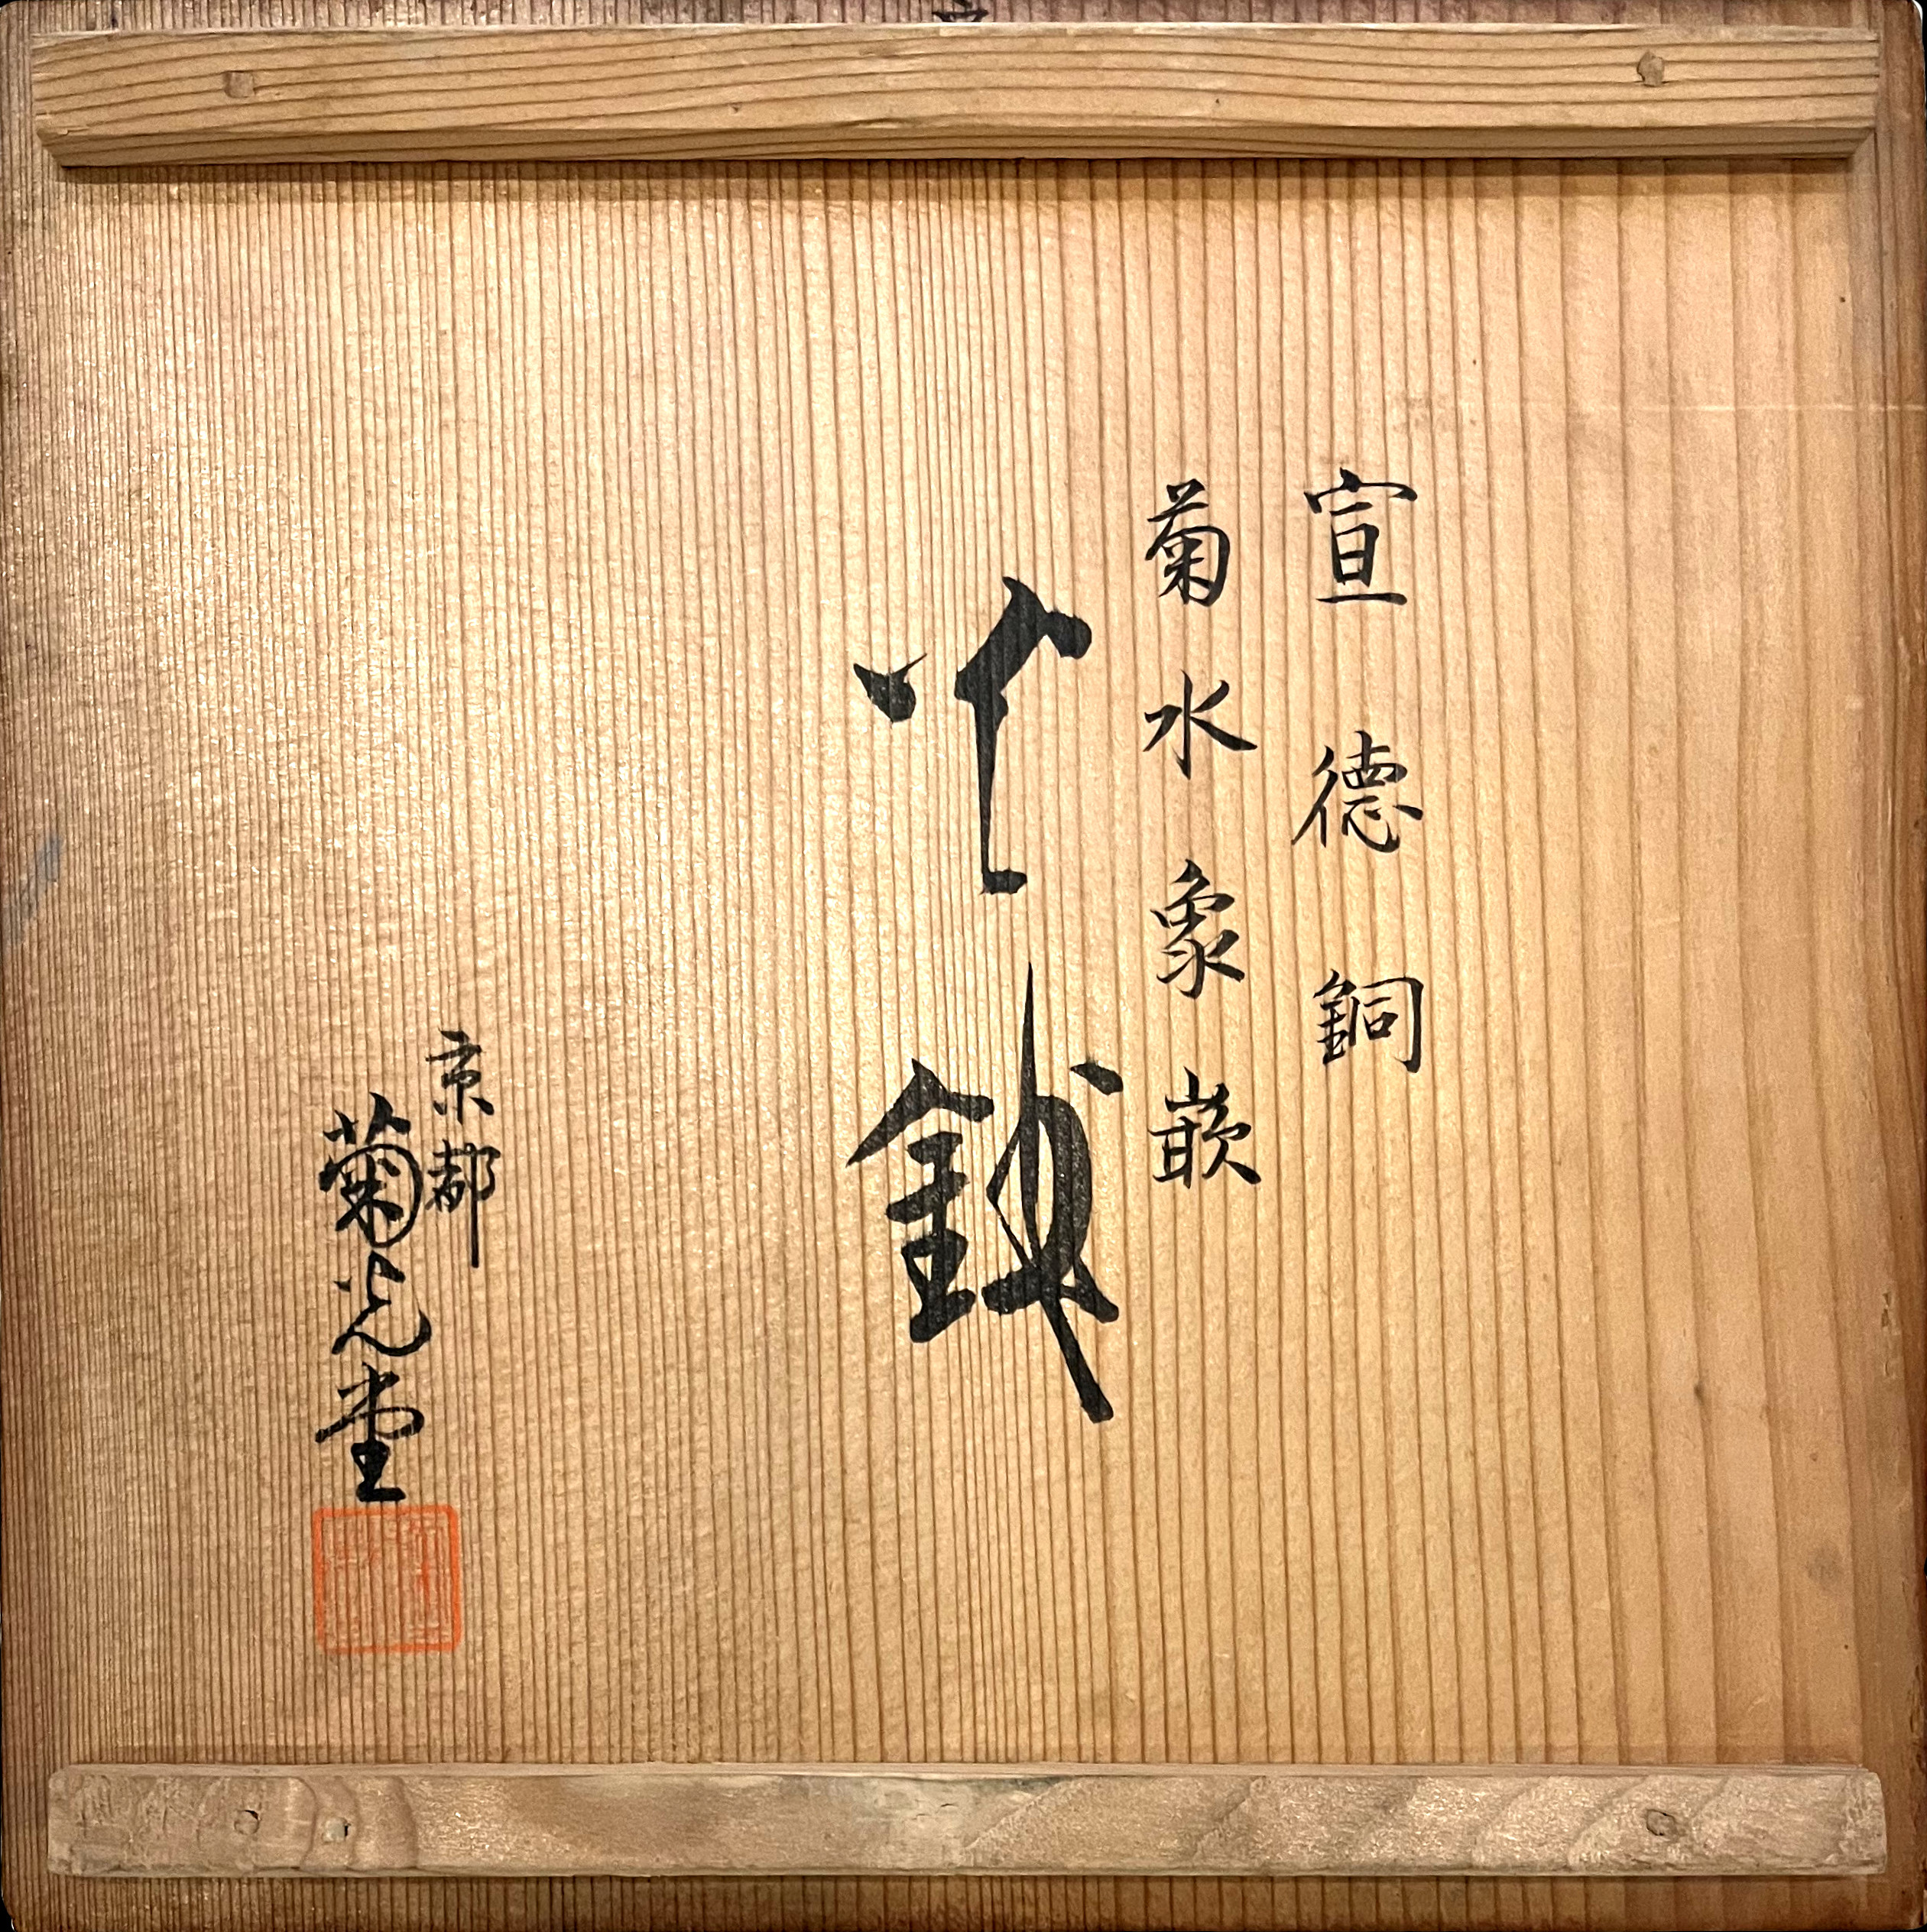 宣德銅
菊水象嵌
水鉢
京都
菊光堂